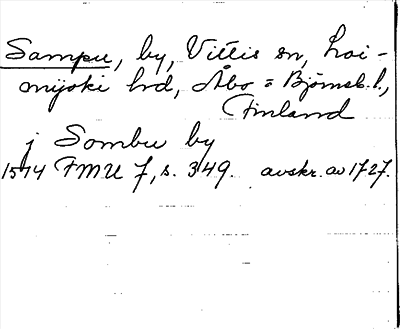 Sampu, by, Vittis sn, Loi-
mijoki hd, Åbo = Björneb. l.,
Finland
j Sombu by
1514 FMU 7, s. 349. avskr. av 1727.